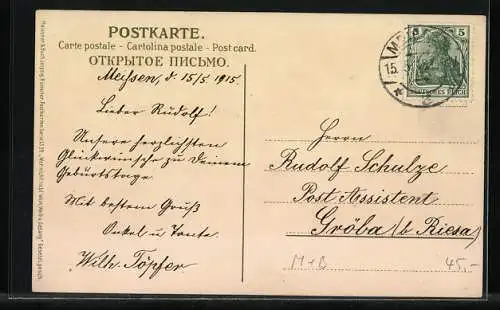 POSTKARTE.
Carte postale – Cartolina postale – Post card.
ОТКРЫТОЕ ПИСЬМО.
Meißen, d 15/5 1915.
Lieber Rudolf!
Unsere herzlichsten
Glückwünsche zu Deinem
Geburtstage.
Mit bestem Gruß
Onkel u Tante.
Wilh. Töpfer
5 5
DEUTSCHES REICH
15.
Herrn
Rudolf Schulze
Post Assistent
Gröba (b Riesa)
M+B
45,-